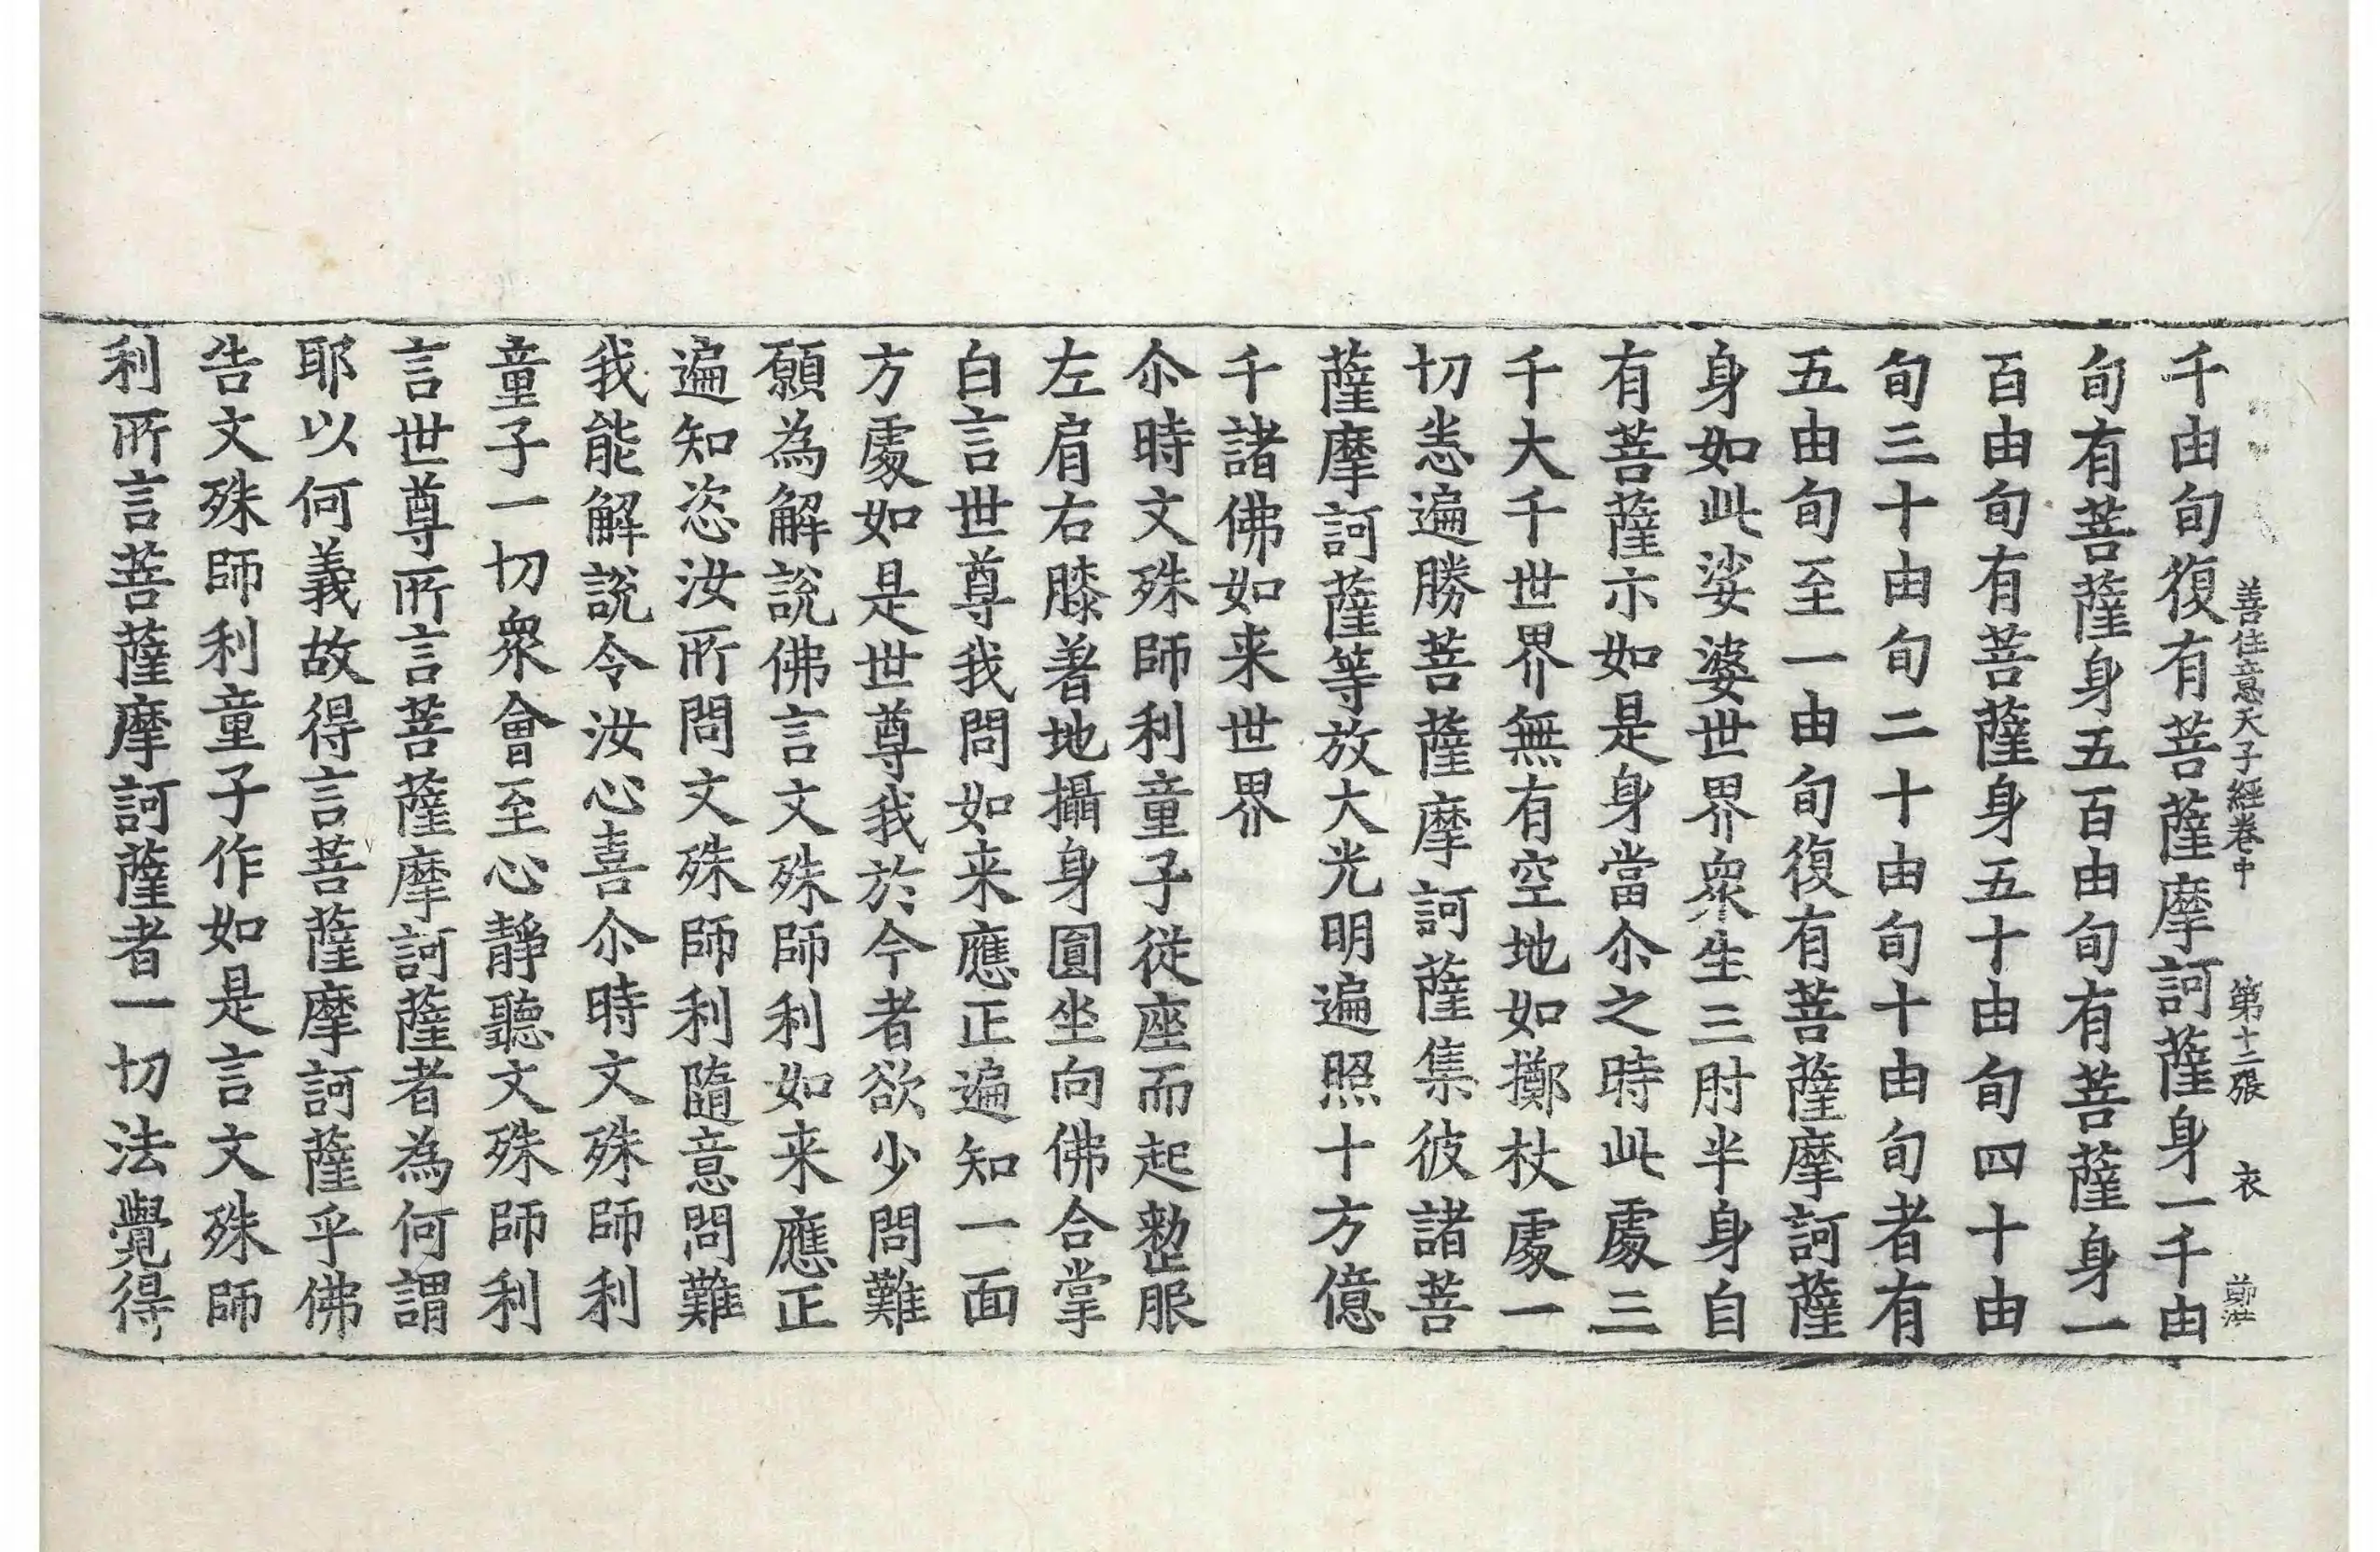 善住意天子經卷中 第十二張 衣
千由旬復有菩薩摩訶薩身一千由
旬有菩薩身五百由旬有菩薩身一
百由旬有菩薩身五十由旬四十由
旬三十由旬二十由旬十由旬者有
五由旬至一由旬復有菩薩摩訶薩
身如此娑婆世界衆生三肘半身自
有菩薩示如是身當尒之時此處三
千大千世界無有空地如擲杖處一
切悉遍勝菩薩摩訶薩集彼諸菩
薩摩訶薩等放大光明遍照十方億
千諸佛如来世界
尒時文殊師利童子從座而起整服
左肩右膝著地攝身圓坐向佛合掌
白言世尊我問如来應正遍知一面
方處如是世尊我於今者欲少問難
願為解說佛言文殊師利如来應正
遍知恣汝所問文殊師利隨意問難
我能解說令汝心喜尒時文殊師利
童子一切衆會至心靜聽文殊師利
言世尊所言菩薩摩訶薩者為何謂
耶以何義故得言菩薩摩訶薩乎佛
告文殊師利童子作如是言文殊師
利所言菩薩摩訶薩者一切法覺得